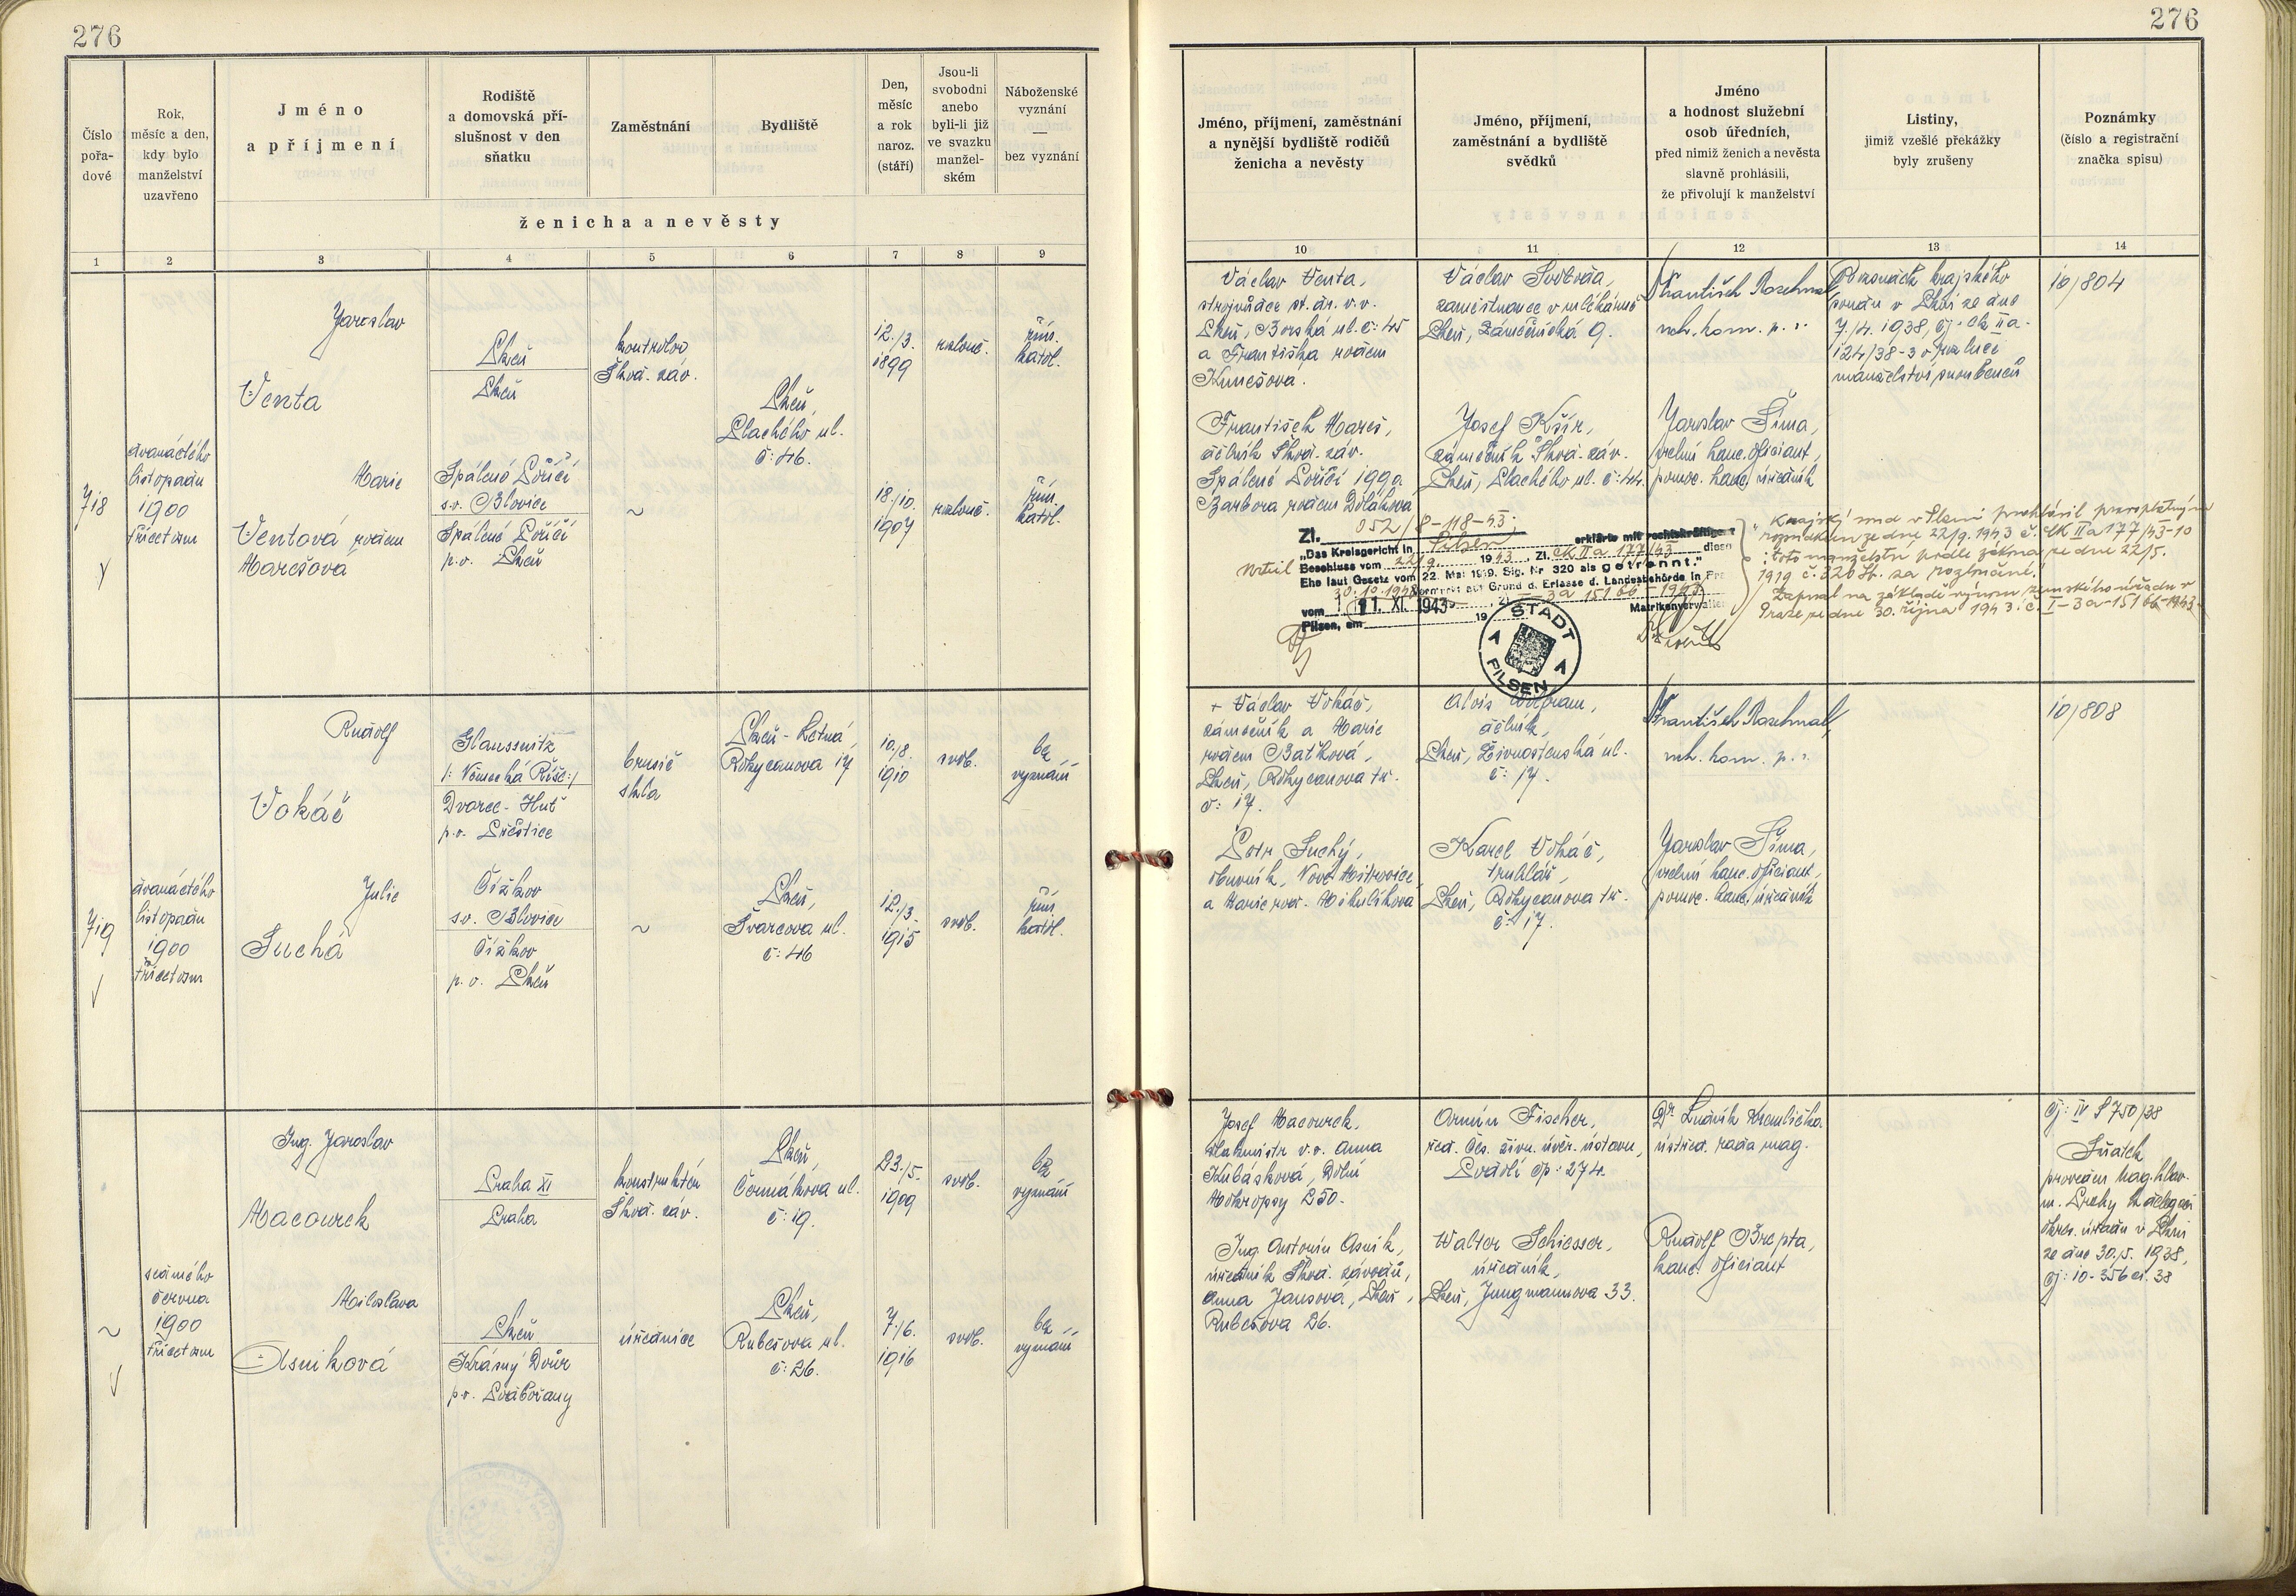 276
276
Číslo pořa- dové
Rok, měsíc a den, kdy bylo manželství uzavřeno
Jméno a příjmení
Rodiště a domovská pří- slušnost v den sňatku
Zaměstnání
Bydliště
Den, měsíc a rok naroz. (stáří)
Jsou-li svobodni anebo byli-li již ve svazku manžel- ském
Náboženské vyznání — bez vyznání
ženicha a nevěsty
Jméno, příjmení, zaměstnání a nynější bydliště rodičů ženicha a nevěsty
Jméno, příjmení, zaměstnání a bydliště svědků
Jméno a hodnost služební osob úředních, před nimiž ženich a nevěsta slavně prohlásili, že přivolují k manželství
Listiny, jimiž vzešlé překážky byly zrušeny
Poznámky (číslo a registrační značka spisu)
1 2 3 4 5 6 7 8 9 10 11 12 13 14
718
dvanáctého
listopadu
1900
třicet osm
Jaroslav
Venta
Plzeň
Plzeň
kontrolor
Škod. záv.
Plzeň,
Plachého ul.
č: 46.
12./3.
1899
rozlouč.
řím.
katol.
Marie
Ventová rozen
Marešova
Spálené Poříčí
s.o. Blovice
Spálené Poříčí
p.o. Plzeň
~
18./10.
1907
rozlouč.
řím.
katol.
Václav Venta,
strojvůdce st. dr. v.v.
Plzeň, Borská ul. č: 45
a Františka rozen
Kunešova.
František Mareš,
dělník Škod. záv.
Spálené Poříčí 1990.
Barbora rozen Dolákova
Václav Svoboda,
zaměstnanec v mlékárně
Plzeň, Zámečnická 9.
Josef Kšír,
zámečník Škod. záv.
Plzeň, Plachého ul. č: 44.
František Roschnal
mh. kom. p. r.
Jaroslav Šíma,
vrchní kanc. oficiant,
pomoc. kanc. úředník
Rozsudek krajského
soudu v Plzni ze dne
7./4. 1938, čj. Ck IIa-
124/38-3 o rozluce
manželství snoubenců
10/804
Zl. 052/8-118-43.
„Das Kreisgericht in Pilsen erklärte mit rechtskräftigem
Beschluss vom 22/9. 1943, Zl. Ck IIa 177/43 diese
Ehe laut Gesetz vom 22. Mai 1919, Slg. Nr 320 als getrennt."
Vermerkt auf Grund d. Erlasse d. Landesbehörde in Pra
vom 30.10.1943 Zl. I-3a 15166-1943
Pilsen, am 11. XI. 1943 19
Matrikenverwalter
STADT PILSEN A A
Krajský soud v Plzni prohlásil pravoplatným
rozsudkem ze dne 22/9. 1943 č. Ck IIa 177/43-10
toto manželství podle zákona ze dne 22/5.
1919 č. 320 Sb. za rozloučené.
Zapsal na základě výnosu zemského úřadu v
Praze ze dne 30. října 1943. č. I-3a-15166-1943.
719
dvanáctého
listopadu
1900
třicet osm
Rudolf
Vokáč
Glaussnitz
/: Německá Říše:/
Dvorec-Huť
p.o. Přeštice
brusič
skla
Plzeň-Letná,
Rokycanova 17
10./8.
1910
svob.
bez
vyznání
Julie
Suchá
Čížkov
s.o. Blovice
Čížkov
p.o. Plzeň
~
Plzeň,
Švarcova ul.
č: 46
12./3.
1915
svob.
řím.
katol.
+ Václav Vokáč,
zámečník a Marie
rozen Baťková,
Plzeň, Rokycanova tř.
č: 17.
Petr Suchý,
obuvník, Nové Mitrovice
a Marie roz. Mikulíkova
Alois Wolfram,
dělník,
Plzeň, Živnostenská ul.
č: 17.
Karel Vokáč,
truhlář,
Plzeň, Rokycanova tř.
č: 17.
František Roschnal,
mh. kom. p. r.
Jaroslav Šíma,
vrchní kanc. oficiant,
pomoc. kanc. úředník
10/808
~
sedmého
června
1900
třicet osm
Ing. Jaroslav
Macourek
Praha XI
Praha
konstruktér
Škod. záv.
Plzeň,
Čermákova ul.
č: 19.
23./5.
1909
svob.
bez
vyznání
Miloslava
Osniková
Plzeň
Krásný Dvůr
p.o. Podbořany
úřednice
Plzeň,
Rubešova ul.
č: 26.
7./6.
1916
svob.
bez
vyznání
Josef Macourek,
v.v. Anna
Kubásková, Dolní
Mokropsy 250.
Ing. Antonín Osnik,
úředník Škod. závodů,
Anna Jansová, Plzeň,
Rubešova 26.
Armin Fischer,
řed. Čes. živn. úvěr. ústavu,
Podolí čp: 274.
Walter Schiesser,
úředník,
Plzeň, Jungmannova 33.
Dr. Ludvík Kremlička
ústřed. rada mag.
Rudolf Břepta,
kanc. oficiant
čj: IV S 750/38
Sňatek
proveden mag. hlav.
m. Prahy k delegaci
okres. úřadu v Plzni
ze dne 30./5. 1938,
čj: 10-356 ci. 38